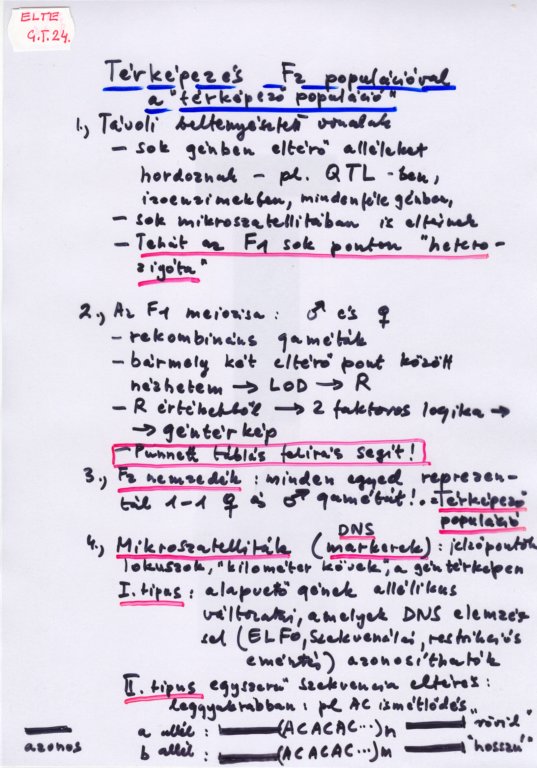 ELTE
G.T.24.
Térképezés F2 populációval
a "térképező populáció"
1., Távoli beltenyésztett vonalak
- sok génben eltérő alléleket
hordoznak - pl. QTL-ben,
izoenzimekben, mindenféle génben,
- sok mikroszatellitában is eltérnek
- Tehát az F1 sok ponton "hetero-
zigóta"
2., Az F1 meiózisa: ♂ és ♀
- rekombináns gaméták
- bármely két eltérő pont között
nézhetem → LOD → R
- R értékekből → 2 faktoros logika →
→ géntérkép
- Punnett táblás felírás segít!
3., F2 nemzedék: minden egyed reprezen-
tál 1-1 ♀ és ♂ gamétát! .. Térképező
populáció
DNS
4., Mikroszatelliták (markerek): jelzőpontok
lokuszok, "kilométer kövek", a géntérképen
I. tipus: alapvető gének allélikus
változatai, amelyek DNS elemzés-
sel (ELFO, szekvenálás, restrikciós
emésztés) azonosíthatók
II. tipus egyszerű szekvencia eltérés:
leggyakrabban: pl AC ismétlődés
a allél: (ACACAC...)n "rövid"
azonos b allél: (ACACAC...)m "hosszú"